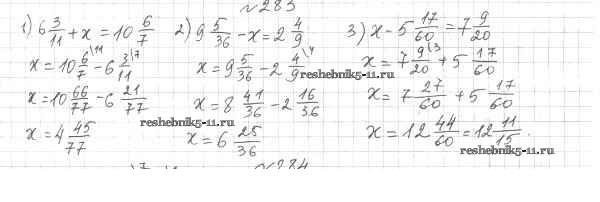 №283
1) 6 3/11 + x = 10 6/7
x = 10 6/7 \11 - 6 3/11 \7
x = 10 66/77 - 6 21/77
x = 4 45/77
2) 9 5/36 - x = 2 4/9
x = 9 5/36 - 2 4/9 \4
x = 8 41/36 - 2 16/36
x = 6 25/36
3) x - 5 17/60 = 7 9/20
x = 7 9/20 \3 + 5 17/60
x = 7 27/60 + 5 17/60
x = 12 44/60 = 12 11/15.
reshebnik5-11.ru
reshebnik5-11.ru
reshebnik5-11.ru
№284